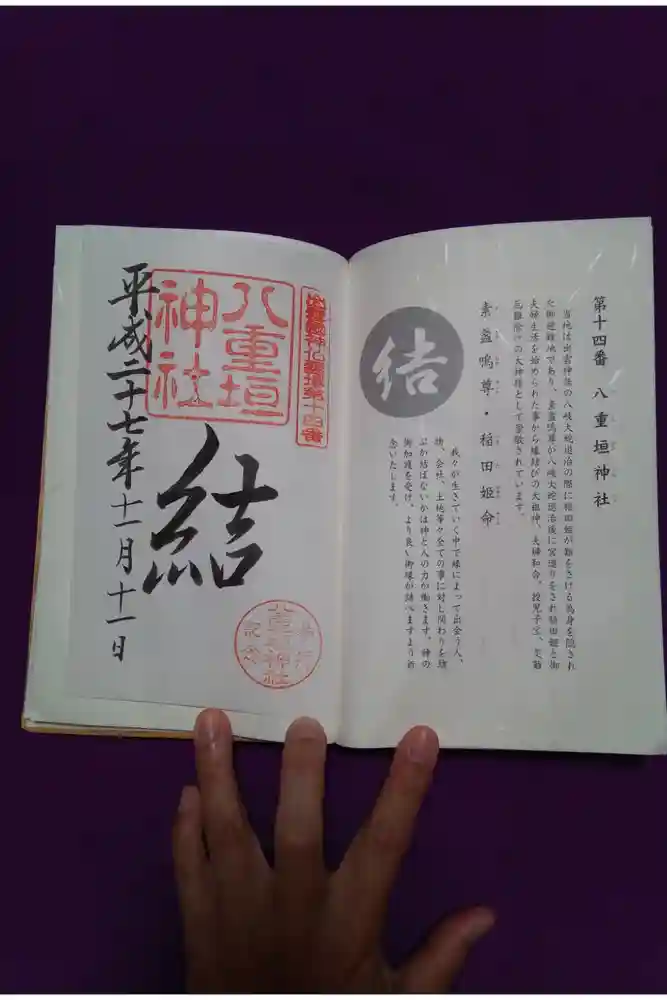 第十四番 八重垣神社
当地は出雲神族の八岐大蛇退治の際に稲田姫が難をさける為身を隠され
た御避難地であり、素盞嗚尊が八岐大蛇退治後に宮造りをされ稲田姫と御
夫婦生活を始められた事から縁結びの大祖神、夫婦和合、授児子宝、災難
厄難除けの大神様として崇敬されています。
素盞嗚尊・稲田姫命
我々が生きていく中で縁によって出会う人、
物、会社、土地等々全ての事に対し関わりを結
ぶか結ばないかは神と人の力が働きます。神の
御加護を受け、より良い御縁が結べますよう祈
念いたします。
結
第十四番
八重垣
神社
結
平成二十七年十一月十一日
八重垣神社